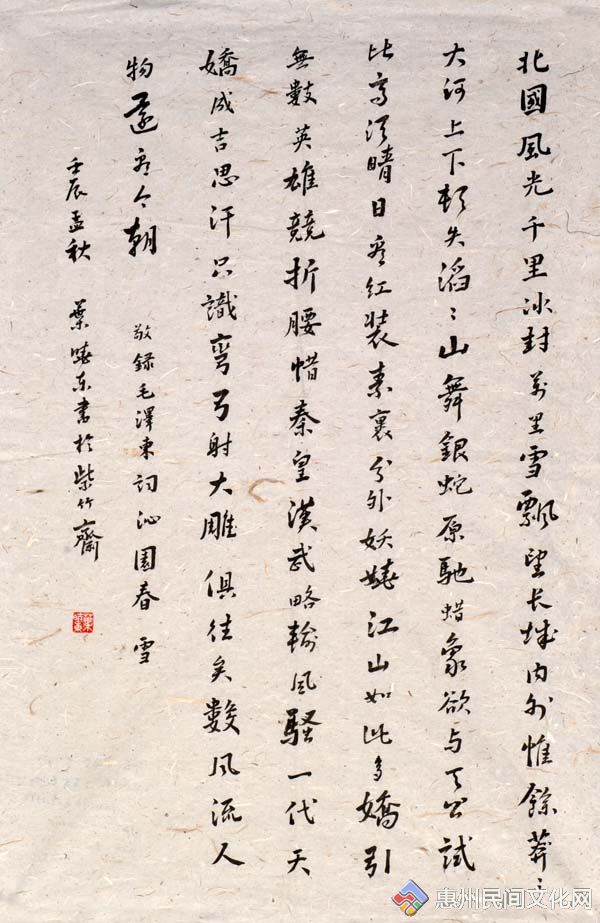 北國風光千里冰封萬里雪飄望长城内外惟餘莽〻
大河上下頓失滔〻山舞銀蛇原馳蜡象欲与天公試
比高须晴日看红装素裹分外妖娆江山如此多嬌引
無數英雄競折腰惜秦皇漢武略輸風騷一代天
嬌成吉思汗只識彎弓射大雕俱往矣數風流人
物還看今朝
敬録毛澤東詞沁園春 雪
壬辰孟秋 葉曉东書於紫竹齋
惠州民间文化网